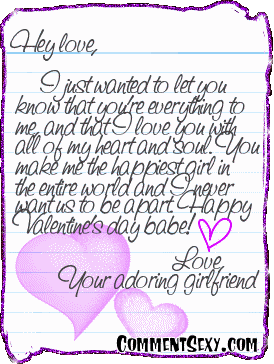 Hey love,
I just wanted to let you
know that you're everything to
me, and that I love you with
all of my heart and soul. You
make me the happiest girl in
the entire world and I never
want us to be apart. Happy
Valentine's day babe!
Love
Your adoring girlfriend
COMMENTSEXY.COM